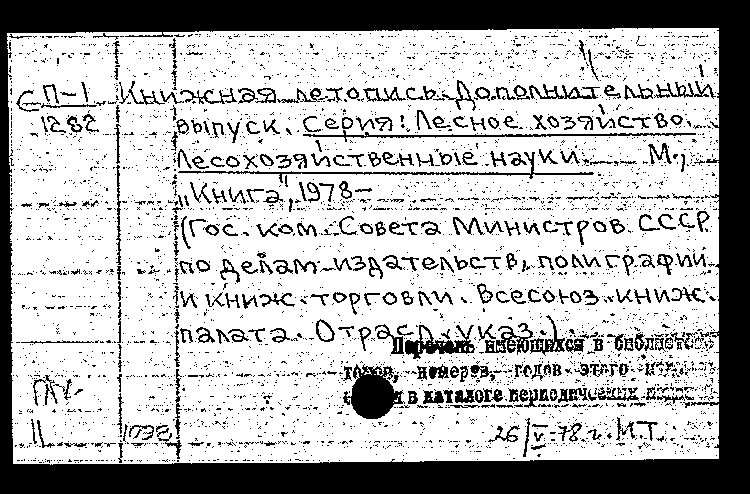 СП-1 Книжная летопись. Дополнительный
1282 выпуск. Серия: Лесное хозяйство.
Лесохозяйственные науки. М.,
„Книга", 1978—
(Гос. ком. Совета Министров СССР
по делам издательств, полиграфии
и книж. торговли. Всесоюз. книж.
палата. Отрасл. указ.)
Перечень имеющихся в библиотеке
томов, номеров, годов этого
в каталоге периодических
26/V-78 г. М.Т.